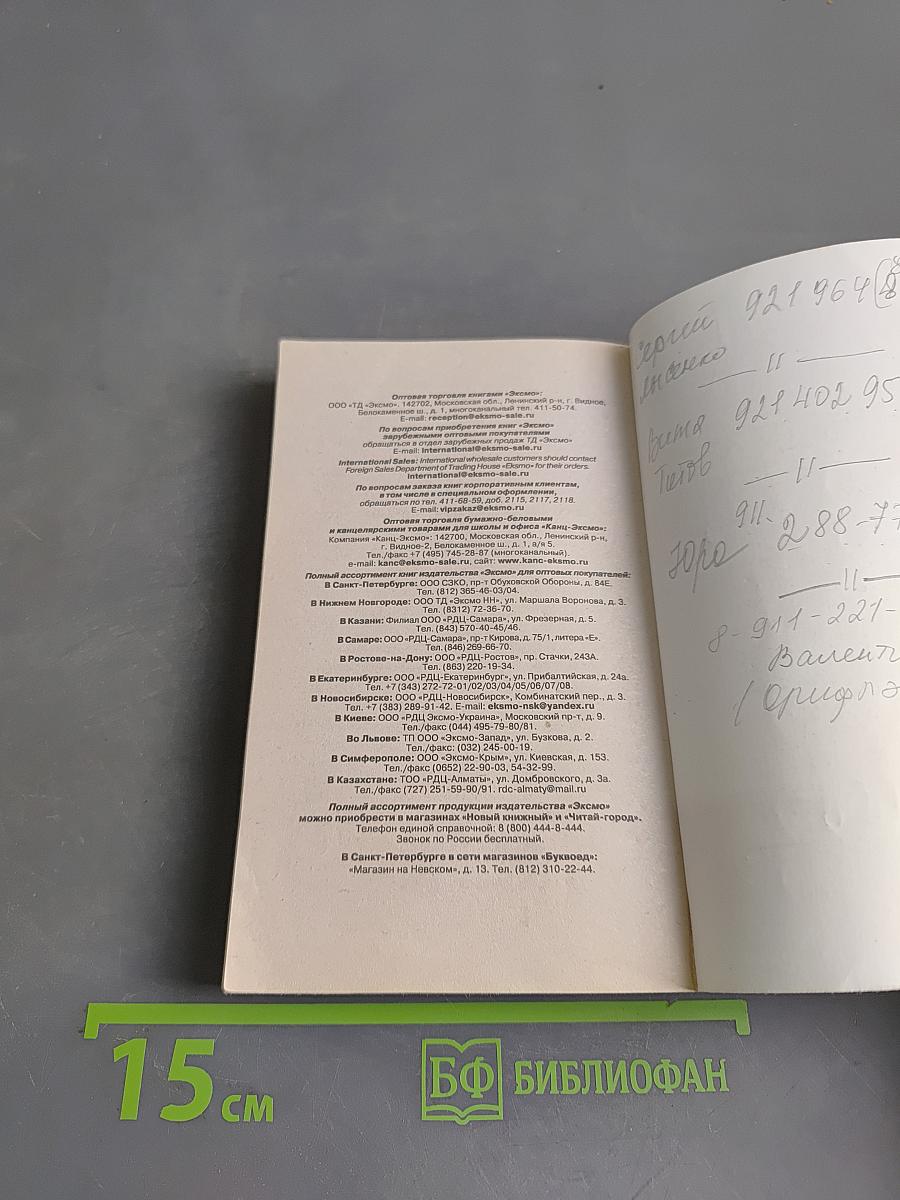 Оптовая торговля книгами «Эксмо»:
ООО «ТД «Эксмо». 142702, Московская обл., Ленинский р-н, г. Видное,
Белокаменное ш., д. 1, многоканальный тел. 411-50-74.
E-mail: reception@eksmo-sale.ru
По вопросам приобретения книг «Эксмо»
зарубежными оптовыми покупателями
обращаться в отдел зарубежных продаж ТД «Эксмо»
E-mail: international@eksmo-sale.ru
International Sales: International wholesale customers should contact
Foreign Sales Department of Trading House «Eksmo» for their orders.
international@eksmo-sale.ru
По вопросам заказа книг корпоративным клиентам,
в том числе в специальном оформлении,
обращаться по тел. 411-68-59, доб. 2115, 2117, 2118.
E-mail: vipzakaz@eksmo.ru
Оптовая торговля бумажно-беловыми
и канцелярскими товарами для школы и офиса «Канц-Эксмо»:
Компания «Канц-Эксмо»: 142700, Московская обл., Ленинский р-н,
г. Видное-2, Белокаменное ш., д. 1, а/я 5.
Тел./факс +7 (495) 745-28-87 (многоканальный).
e-mail: kanc@eksmo-sale.ru, сайт: www.kanc-eksmo.ru
Полный ассортимент книг издательства «Эксмо» для оптовых покупателей:
В Санкт-Петербурге: ООО СЗКО, пр-т Обуховской Обороны, д. 84Е.
Тел. (812) 365-46-03/04.
В Нижнем Новгороде: ООО ТД «Эксмо НН», ул. Маршала Воронова, д. 3.
Тел. (8312) 72-36-70.
В Казани: Филиал ООО «РДЦ-Самара», ул. Фрезерная, д. 5.
Тел. (843) 570-40-45/46.
В Самаре: ООО «РДЦ-Самара», пр-т Кирова, д. 75/1, литера «Е».
Тел. (846) 269-66-70.
В Ростове-на-Дону: ООО «РДЦ-Ростов», пр. Стачки, 243А.
Тел. (863) 220-19-34.
В Екатеринбурге: ООО «РДЦ-Екатеринбург», ул. Прибалтийская, д. 24а.
Тел. +7 (343) 272-72-01/02/03/04/05/06/07/08.
В Новосибирске: ООО «РДЦ-Новосибирск», Комбинатский пер., д. 3.
Тел. +7 (383) 289-91-42. E-mail: eksmo-nsk@yandex.ru
В Киеве: ООО «РДЦ Эксмо-Украина», Московский пр-т, д. 9.
Тел./факс (044) 495-79-80/81.
Во Львове: ТП ООО «Эксмо-Запад», ул. Бузкова, д. 2.
Тел./факс: (032) 245-00-19.
В Симферополе: ООО «Эксмо-Крым», ул. Киевская, д. 153.
Тел./факс (0652) 22-90-03, 54-32-99.
В Казахстане: ТОО «РДЦ-Алматы», ул. Домбровского, д. 3а.
Тел./факс (727) 251-59-90/91. rdc-almaty@mail.ru
Полный ассортимент продукции издательства «Эксмо»
можно приобрести в магазинах «Новый книжный» и «Читай-город».
Телефон единой справочной: 8 (800) 444-8-444.
Звонок по России бесплатный.
В Санкт-Петербурге в сети магазинов «Буквоед»:
«Магазин на Невском», д. 13. Тел. (812) 310-22-44.
921 964
— 11 —
Витя 921 402 95
Титов
— 11 —
911-
Юра 288-77
— 11 —
8-911-221-
Валент
15 см
БФ БИБЛИОФАН